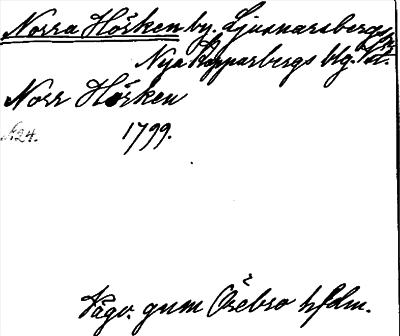 Norra Hörken by. Ljusnarsbergs
Nya Kopparbergs blg.
Norr Hörken
N:24. 1799.
Vägv. gnm Örebro hfdm.